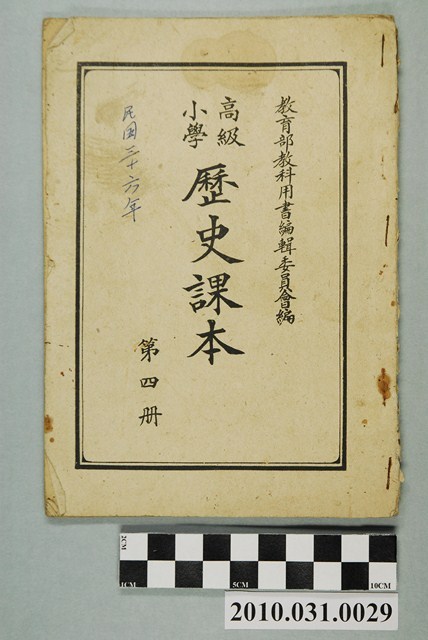 教育部教科用書編輯委員會編
高級
小學
歷史課本
第四册
民国三十六年
2CM
1CM
5CM
10CM
2010.031.0029